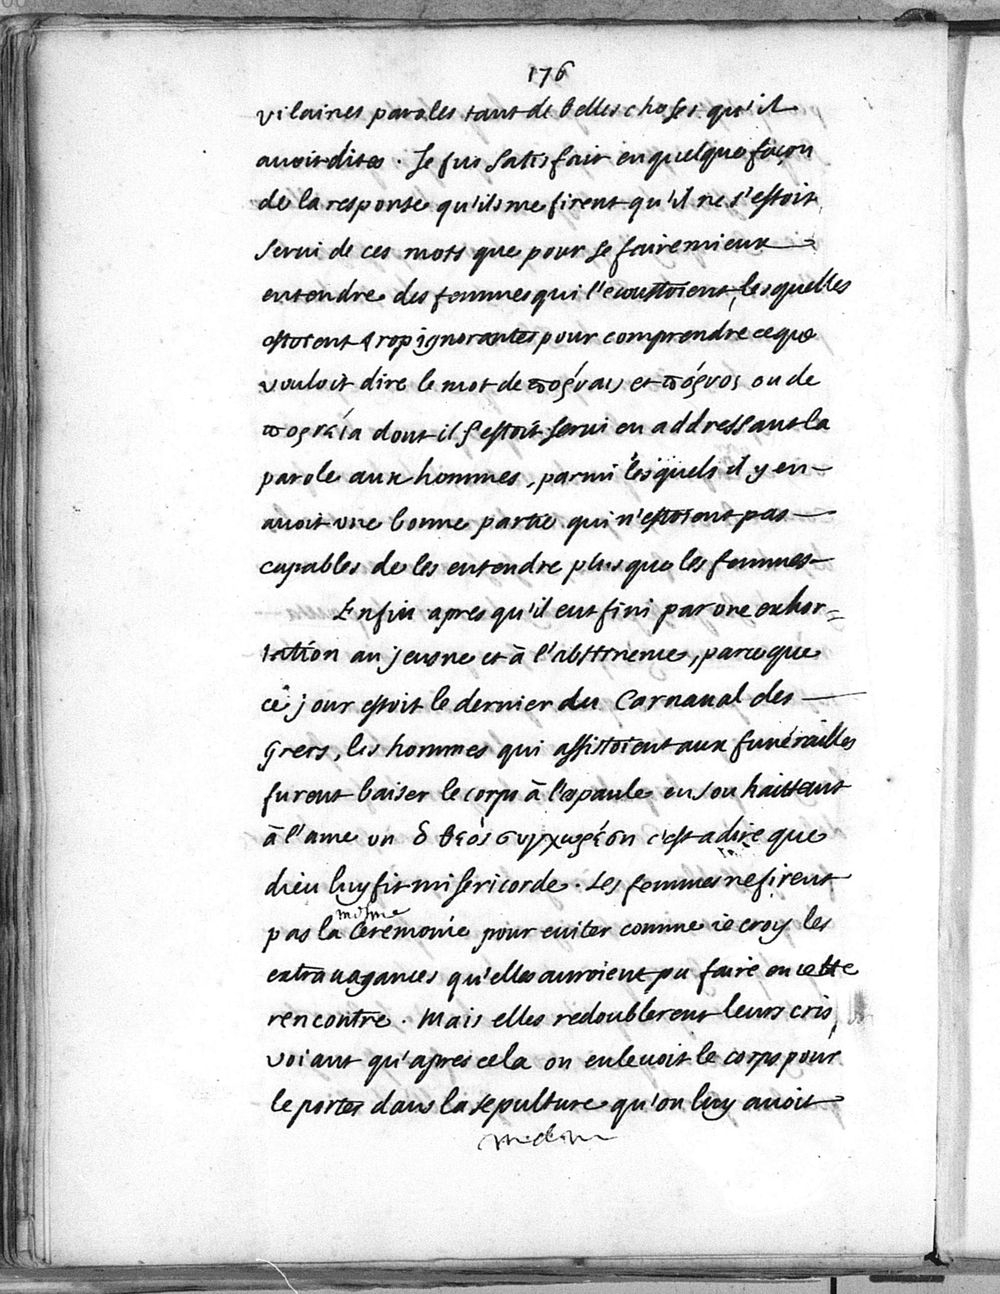 176
vilaines paroles tant de belles choses qu'il
avoit dites. Je fus satisfait en quelque façon
de la response qu'ils me firent qu'il ne s'estoit
servi de ces mots que pour se faire mieux
entendre des femmes qui l'écoustoient, lesquelles
estoient trop ignorantes pour comprendre ce que
vouloit dire le mot de πόρναις et πόρνος ou de
πορνεία dont il s'estoit servi en addressant la
parole aux hommes, parmi lesquels il y en
avoit une bonne partie qui n'estoient pas
capables de les entendre plus que les femmes
Enfin apres qu'il eut fini par une exhor=
tation au jeusne et à l'abstinence, parce que
ce jour estoit le dernier du Carnaval des
Grecs, les hommes qui assistoient aux funérailles
furent baiser le corps à l'espaule en souhaittant
à l'ame un ὁ θεὸς συγχωρέση c'est a dire que
dieu luy fit misericorde. Les femmes ne firent
pas la mesme Ceremonie pour eviter comme ie croy les
extravagances qu'elles auroient pu faire en cette
rencontre. Mais elles redoublerent leurs cris,
voiant qu'apres cela on enlevoit le corps pour
le porter dans la sepulture qu'on luy avoit